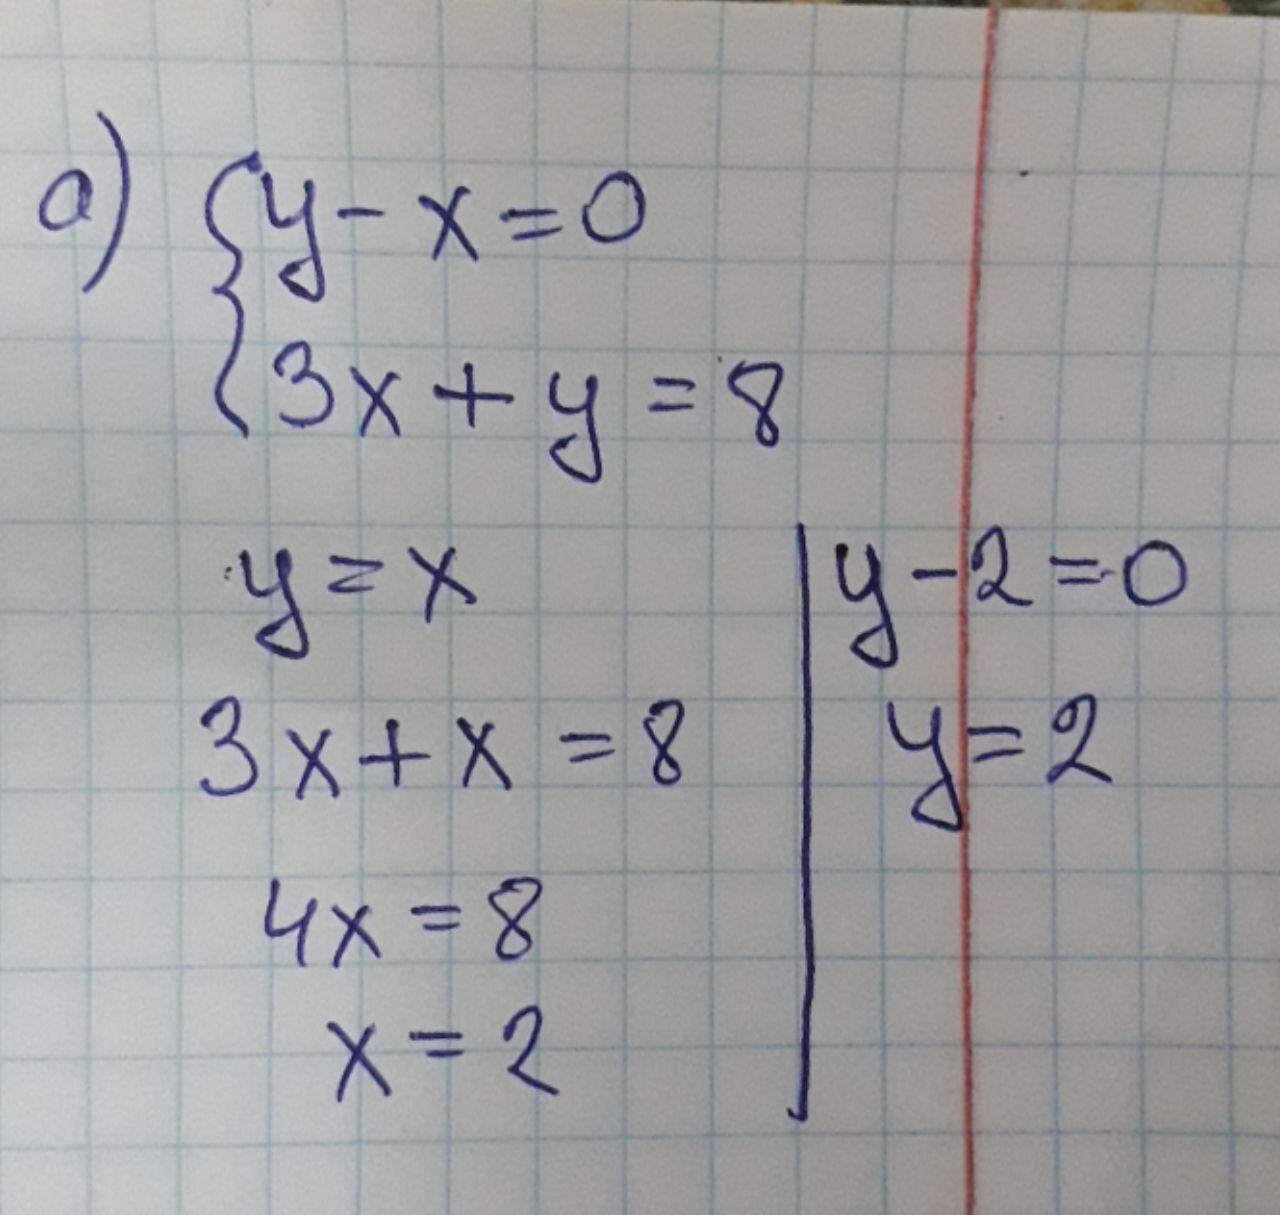 a) { y - x = 0
3x + y = 8
y = x
3x + x = 8
4x = 8
x = 2
y - 2 = 0
y = 2